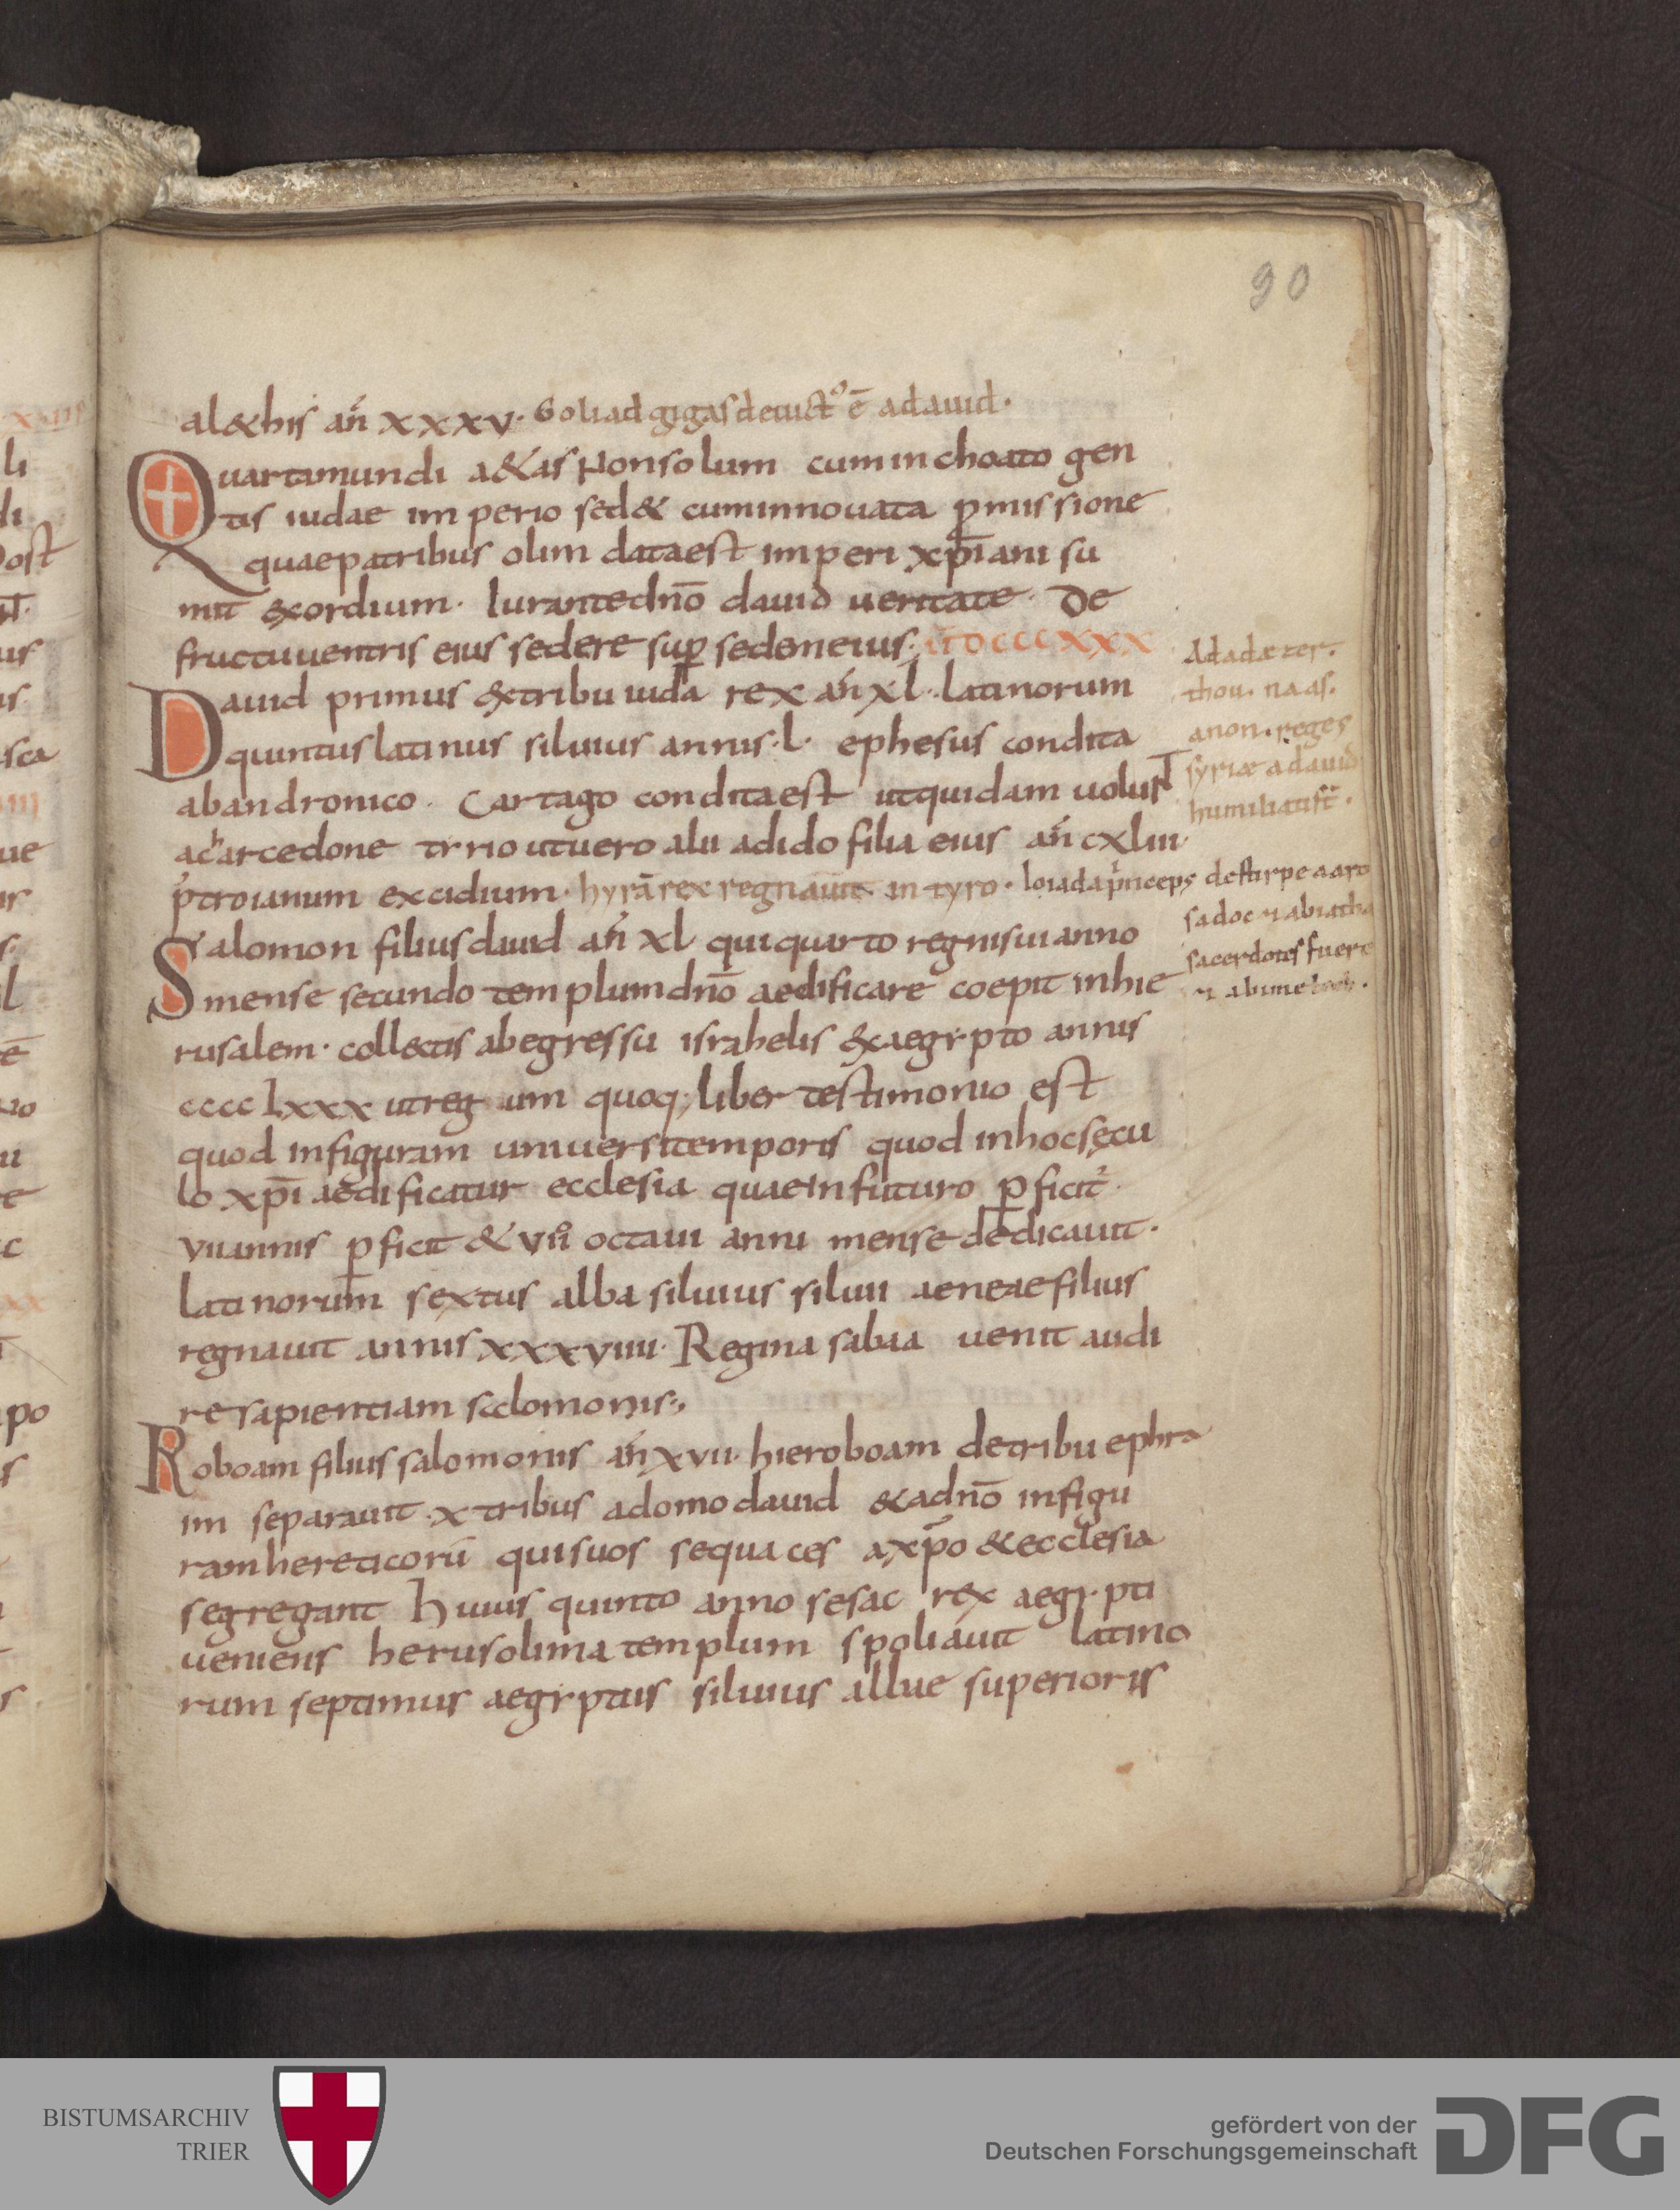 90
al&his an̄ xxxv. Goliad gigas deuict⁹ ē a dauid.
Quarta mundi a&as Non solum cum inchoato gen
tis iudae imperio sed & cum innouata ꝑmissione
quae patribus olim data est imperi xp̄iani su
mit &xordium. Iurante dn̄o dauid ueritate. De
fructu uentris eius sedere suꝑ sedem eius;
Dauid primus &xtribu iuda rex an̄ xl. latinorum
quintus latinus siluius annis. l. ephesus condita
ab andronico. Cartago condita est ut quidam uolunt
a carcedone tyrio ut uero alii a dido filia eius an̄ cxliii.
p̄ troianum excidium. hyrā rex regnauit in tyro. Ioiada p̄nceps de stirpe aaro
Salomon filius dauid an̄ xl qui quarto regni sui anno
mense secundo templum dn̄o aedificare coepit in hie
rusalem. collectis ab egressu israhelis &x aegypto annis
cccc lxxx ut reg um quoq; liber testimonio est
quod in figuram uniuersi temporis quod in hoc sęcu
lo xp̄i aedificatur ecclesia quae in futuro ꝑficit̄.
vii annis ꝑficit & vii⁰ octaui anni mense dedicauit.
Latinorum sextus alba siluius siluii aeneae filius
regnauit annis xxxviiii. Regina sabaa uenit audi
re sapientiam solomonis;
Roboam filius salomonis an̄ xvii. hieroboam de tribu ephra
im separauit. x tribus a domo dauid & a dn̄o in figu
ram hereticorū qui suos sequaces a xp̄o & ecclesia
segregant Huius quinto anno sesac rex aegypti
ueniens herusolima templum spoliauit latino
rum septimus aegyptus siluius albe superioris
thou. naas.
anon. reges
syriæ a dauid
sadoc
sacerdotes fuere
BISTUMSARCHIV
TRIER
gefördert von der
Deutschen Forschungsgemeinschaft
DFG